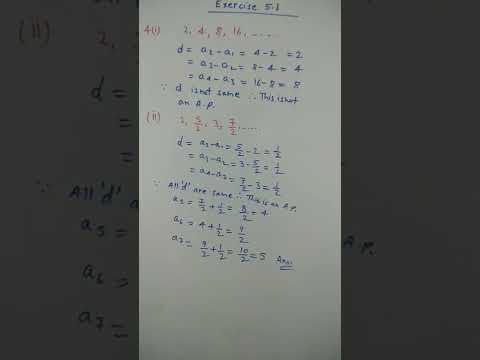 Exercise 5.1
4(i) 2, 4, 8, 16, ......
d = a₂ - a₁ = 4 - 2 = 2
= a₃ - a₂ = 8 - 4 = 4
= a₄ - a₃ = 16 - 8 = 8
∵ d is not same ∴ This is not
an A.P.
(ii) 2, 5/2, 3, 7/2, .....
d = a₂ - a₁ = 5/2 - 2 = 1/2
= a₃ - a₂ = 3 - 5/2 = 1/2
= a₄ - a₃ = 7/2 - 3 = 1/2
∵ All 'd' are same ∴ This is an A.P.
a₅ = 7/2 + 1/2 = 8/2 = 4
a₆ = 4 + 1/2 = 9/2
a₇ = 9/2 + 1/2 = 10/2 = 5 Ans